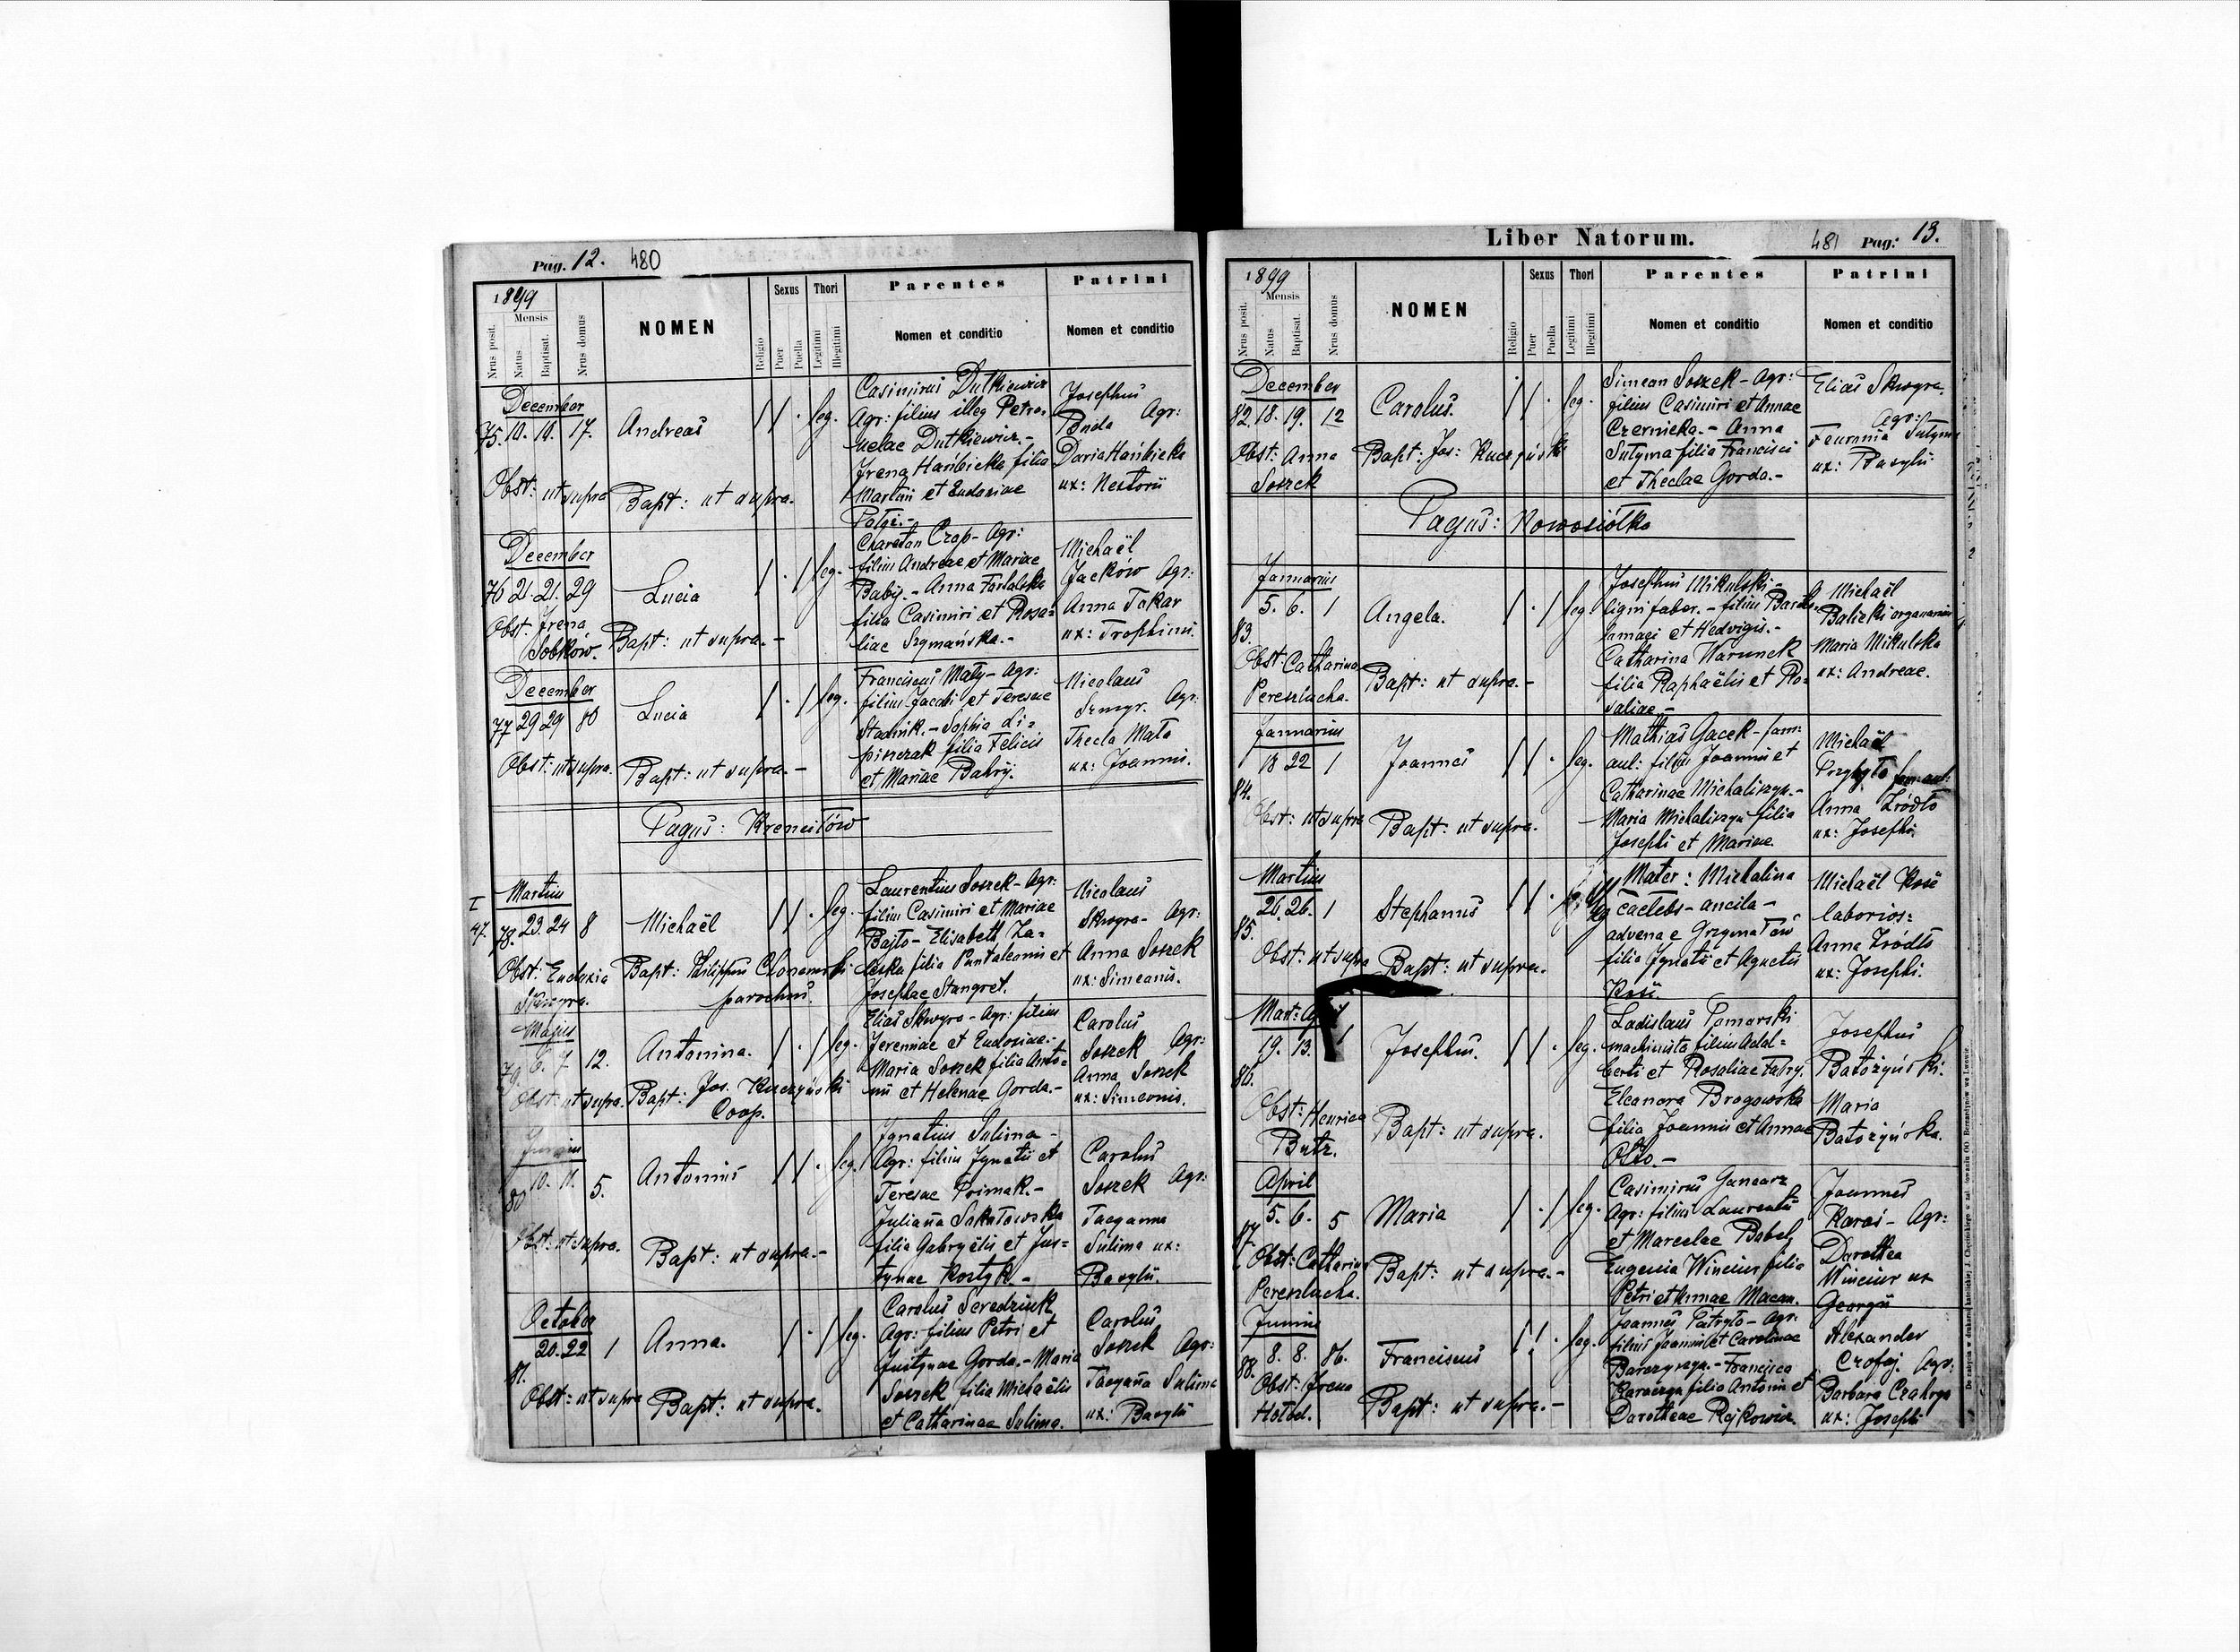 Pag. 12. 480
1899
Nrus posit.
Mensis
Natus
Baptisat.
Nrus domus
NOMEN
Religio
Sexus
Puer
Puella
Thori
Legitimi
Illegitimi
Parentes
Nomen et conditio
Patrini
Nomen et conditio
December
75. 10. 16. 17. Andreas leg.
Obst: ut supra Bapt: ut supra.
Casimirus Dutkiewicz
Agr: filius illeg Petro-
nelae Dutkiewicz.-
Irena Hańbicka filia
Martini et Eudoxiae
Josephus
Buda Agr:
Daria Hańbicka
ux: Nestorii
December
76 21. 21. 29 Lucia leg.
Obst: Irena
Sobków. Bapt: ut supra.-
Chariton Czop - Agr:
filius Andreae et Mariae
Babij.- Anna
filia Casimiri et Rosa-
liae Szymańska.-
Michaël
Jacków Agr:
Anna Tokar
ux: Trophimi.
December
77 29 29 80 Lucia leg.
Obst: ut supra. Bapt: ut supra.-
Franciscus Mały - Agr:
filius Jacobi et Teresae
Stadnik.- Sophia Li-
piszczak filia Felicis
et Mariae Bakry.
Nicolaus
Agr:
Thecla Mało
ux: Joannis.
Pagus: Krenciłów
Martius
I
47. 78. 23. 24 8 Michaël leg.
Obst: Eudoxia Bapt: Philippus
Skwyra. parochus.
Laurentius Soszek - Agr:
filius Casimiri et Mariae
Bajło - Elisabeth Za-
leska filia Pantaleonis et
Josephae Stangret.
Nicolaus
Skwyra - Agr:
Anna Soszek
ux: Simeonis.
Majus
79. 6. 7 12. Antonina. leg.
Obst: ut supra. Bapt: Jos. Kuczyński
Coop.
Elias Skwyra - Agr: filius
Jeremiae et Eudoxiae.-
Maria Soszek filia Anto-
nii et Helenae Gorda.-
Carolus
Soszek Agr:
Anna Soszek
ux: Simeonis.
Junius
80 10. 11. 5. Antonius leg.
Obst: ut supra. Bapt: ut supra.-
Ignatius Sulima -
Agr: filius Ignatii et
Teresae Primak.-
Juliana Sokołowska
filia Gabryëlis et Jus-
tynae Kostyk.-
Carolus
Soszek Agr:
Tacyanna
Sulima ux:
Bazylii.
October
81. 20. 22 1 Anna. leg.
Obst: ut supra Bapt: ut supra.
Carolus Seredziuk
Agr: filius Petri et
Justynae Gorda.- Maria
Soszek filia Michaëlis
et Catharinae Sulima.
Carolus
Soszek Agr:
Tacyana Sulima
ux: Bazylii
Liber Natorum. 481 Pag: 13.
1899
Nrus posit.
Mensis
Natus
Baptisat.
Nrus domus
NOMEN
Religio
Sexus
Puer
Puella
Thori
Legitimi
Illegitimi
Parentes
Nomen et conditio
Patrini
Nomen et conditio
December
82. 18. 19. 12 Carolus. leg.
Obst: Anna Bapt: Jos: Kuczyński
Soszek
Simeon Soszek - Agr:
filius Casimiri et Annae
Czernicka.- Anna
Sulyma filia Francisci
et Theclae Gorda.-
Elias Skwyra.
Agr:
Feuronia Sulyma
ux: Bazylii
Pagus: Nowosiółka
Januarius
5. 6. 1 Angela. leg.
83.
Obst: Catharina
Pereszlucha. Bapt: ut supra.-
Josephus Mikulski -
ligni faber.- filius Bartho-
lomaei et Hedvigis.-
Catharina Warunek
filia Raphaëlis et Ro-
saliae.-
Michaël
Balicki organarius
Maria Mikulska
ux: Andreae.
Januarius
18 22 1 Joannes leg.
84.
Obst: ut supra Bapt: ut supra.
Mathias Gacek - fam:
aul: filius Joannis et
Catharinae Michaliszyn.-
Maria Michaliszyn filia
Josephi et Mariae
Michaël
Przybyła fam: aul:
Anna Źródło
ux: Josephi.
Martius
26. 26. 1 Stephanus
85.
Obst: ut supra Bapt: ut supra.
Mater: Michalina
caelebs - ancila -
advena e Grzymałów
filia Ignatii et Agnetis
Michaël
laborios:
Anna Źródło
ux: Josephi.
Mart: April
19. 13. 1 Josephus. leg.
86.
Obst: Henrica
Butz. Bapt: ut supra.
Ladislaus Pomorski
machinista filius Adal-
berti et Rosaliae Fabry.
Eleonora Brogowska
filia Joannis et Annae
Josephus
Batożyński.
Maria
Batożyńska.
April
5. 6. 5 Maria leg.
87
Obst: Catharina
Pereszlucha. Bapt: ut supra.-
Casimirus Gancarz
Agr: filius Laurentii
et Marcelae Babel,
Eugenia Winciur filia
Petri et Annae Macan.
Joannes
Karaś - Agr:
Dorothea
Winciur ux
Georgii
Junius
8. 8. 86. Franciscus leg.
88.
Obst: Irena
Bapt: ut supra.-
Joannes Patryło - Agr:
filius Joannis et Carolinae
Francisca
filia Antonii et
Dorotheae
Alexander
Agr:
Barbara
ux: Josephi